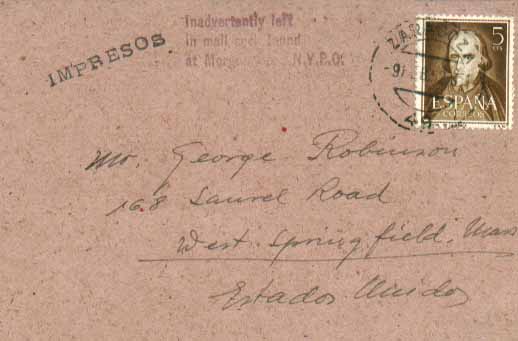 IMPRESOS
Inadvertently left
in mail found
at Morg N.Y.P.O.
ZARA
5
CTS
ESPAÑA
CORREOS
Mr. George Robinson
168 Laurel Road
West Springfield, Mass
Estados Unidos